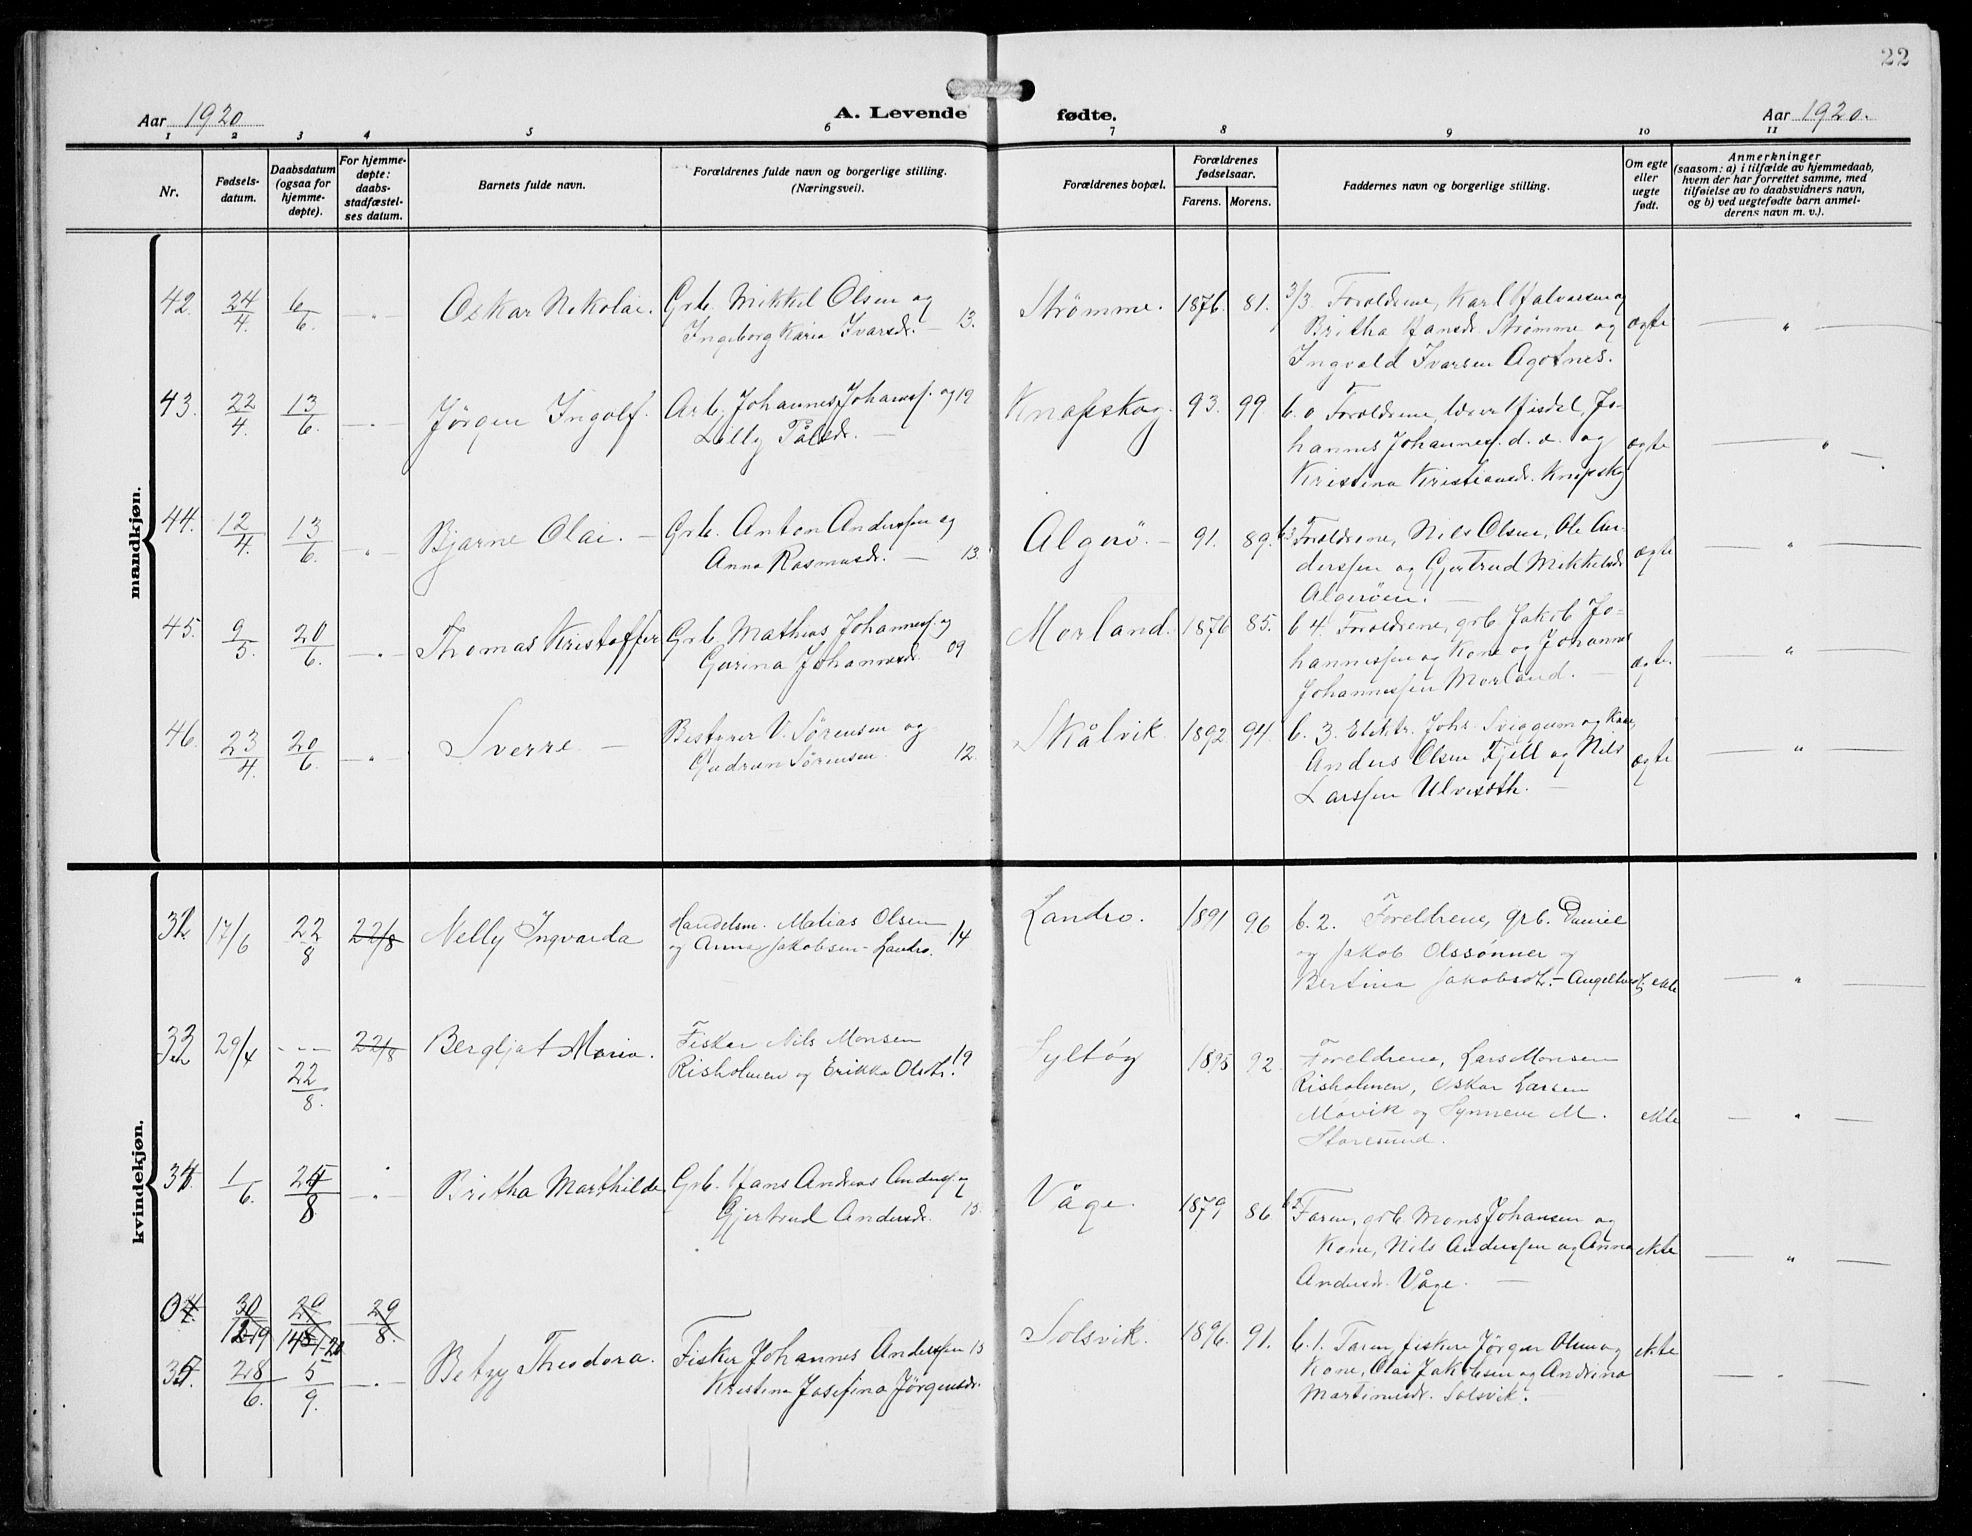 22
Aar 1920
A. Levende fødte.
Aar 1920.
1 2 3 4 5 6 7 8 9 10 11
Nr.
Fødsels-
datum.
Daabsdatum
(ogsaa for
hjemme-
døpte).
For hjemme-
døpte:
daabs-
stadfæstel-
ses datum.
Barnets fulde navn.
Forældrenes fulde navn og borgerlige stilling.
(Næringsvei).
Forældrenes bopæl.
Forældrenes
fødselsaar.
Farens. Morens.
Faddernes navn og borgerlige stilling.
Om egte
eller
uegte
født.
Anmerkninger
(saasom: a) i tilfælde av hjemmedaab,
hvem der har forrettet samme, med
tilføielse av to daabsvidners navn,
og b) ved uegtefødte barn anmel-
derens navn m. v.).
mandkjøn.
42. 24/4 6/6. — " — Oskar Nikolai. Grb. Mikkel Olsen og
Ingeborg Karia Ivarsdr. — 13.
Strømme. 1876. 81. 3/3. Foreldrene, Karl Halvorsen og
Britha Hansdr. Strømme og
Ingvald Ivarsen Agotnes.
egte — " —
43. 22/4. 13/6. — " — Jørgen Ingolf. Arb. Johannes Johannesf. og 19
Lilly Pålsdr. —
Knapskog. 93. 99. b. 0 Foreldrene, Jo-
hannes Johannesf. d. e. og
Kristina Kristiansdr. Knapskg
egte — " —
44. 12/4. 13/6. — " — Bjarne Olai. — Grb. Anton Anderssen og
Anna Rasmusdr. — 13.
Algerö. — 91. 89. b3 Foreldrene, Nils Olsen, Ole An-
derssen og Gjertrud Mikkelsdr
Algerøen. —
egte — " —
45. 9/5. 20/6. — " — Thomas Kristoffer Grb. Mathias Johannesf. og
Gurina Johannesdr. 09
Morland. 1876 85. b 4. Foreldrene, grb. Jakob Jo-
hannessen og Kone og Johannes
Johannessen Morland. —
egte. — " —
46. 23/4. 20/6. — " — Sverre. — Bestyrer V. Sørensen og
Gudrun Sørensen. 12.
Skålvik. 1892. 94. b. 3. Elektr. Johs. Sviggum og Kone,
Anders Olsen Fjell og Nils
Larssen Ulveseth. —
egte — " —
kvindekjøn.
32. 17/6 22/8 22/8 Nelly Ingvarda Handelsm. Matias Olsen
og Anna Jakobsen - Landro. 14
Landro. 1891 96 b. 2. Foreldrene, grb. Daniel
og Jakob Olssønner og
Bertina Jakobsdtr. - Angeltveit.
ekte — " —
33 29/4 --- 22/8 Bergljot Maria. Fisker Nils Monsen
22/8. Risholmen og Erikka Olsdtr. 19
Syltøy 1895 92. Foreldrene, Lars Monsen
Risholmen, Oskar Larsen
Møvik og Synneve M.
Storesund.
ekte — " —
34. 1/6. 25/8 — " — Britha Marthilde. Grb. Hans Andreas Andersf. og
Gjertrud Andersdr. 13.
Våge. 1879 86 b2 Faren, grb. Mons Johansen og
Kone, Nils Anderssen og Anna
Andersdr. Våge. —
ekte — " —
30/12-19 29/8 29/8.
35. 28/6. 5/9. — " — Betzy Theodora. Fisker Johannes Anderssen 15
Kristina Josefina Jörgensdr.
Solsvik. 1896. 91. b. 1. Faren, fisker Jörgen Olsen og
Kone, Olai Jakobsen og Andrina
Martinusdr. Solsvik.
ekte — " —